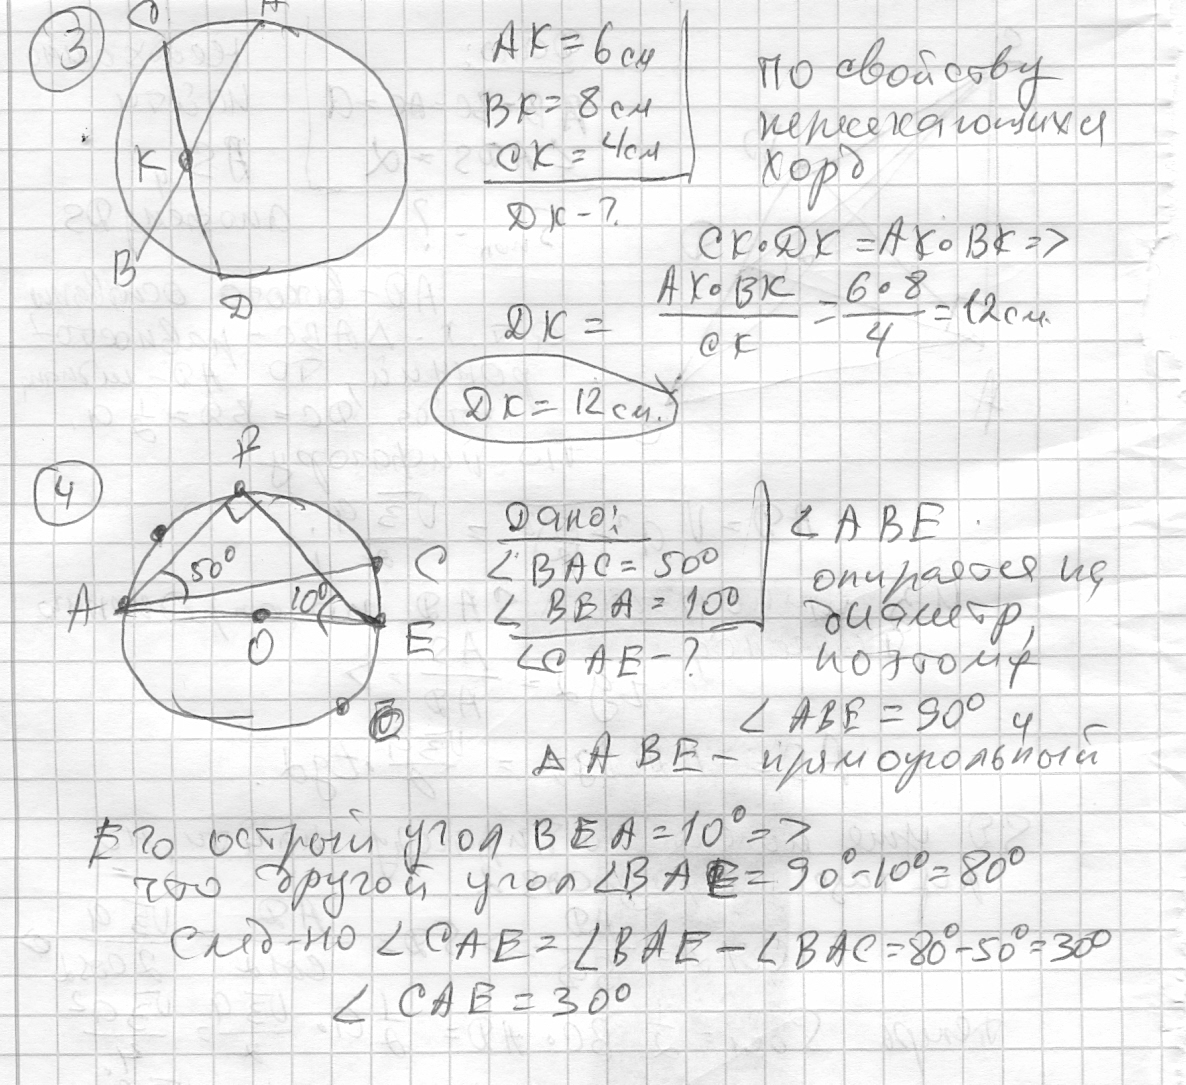 3
C A
K
B
D
AK = 6 см
BK = 8 см
CK = 4 см
DK - ?
По свойству
пересекающихся
хорд
CK • DK = AK • BK =>
DK = AK • BK / CK = 6 • 8 / 4 = 12 см.
DK = 12 см.
4
A
C
E
O
50°
10°
Дано:
∠ BAC = 50°
∠ BEA = 10°
∠ CAE - ?
∠ ABE
опирается на
диаметр,
поэтому
∠ ABE = 90° и
Δ ABE – прямоугольный
Его острый угол BEA = 10° =>
что другой угол ∠BAE = 90° - 10° = 80°
След-но ∠ CAE = ∠ BAE - ∠ BAC = 80° - 50° = 30°
∠ CAE = 30°